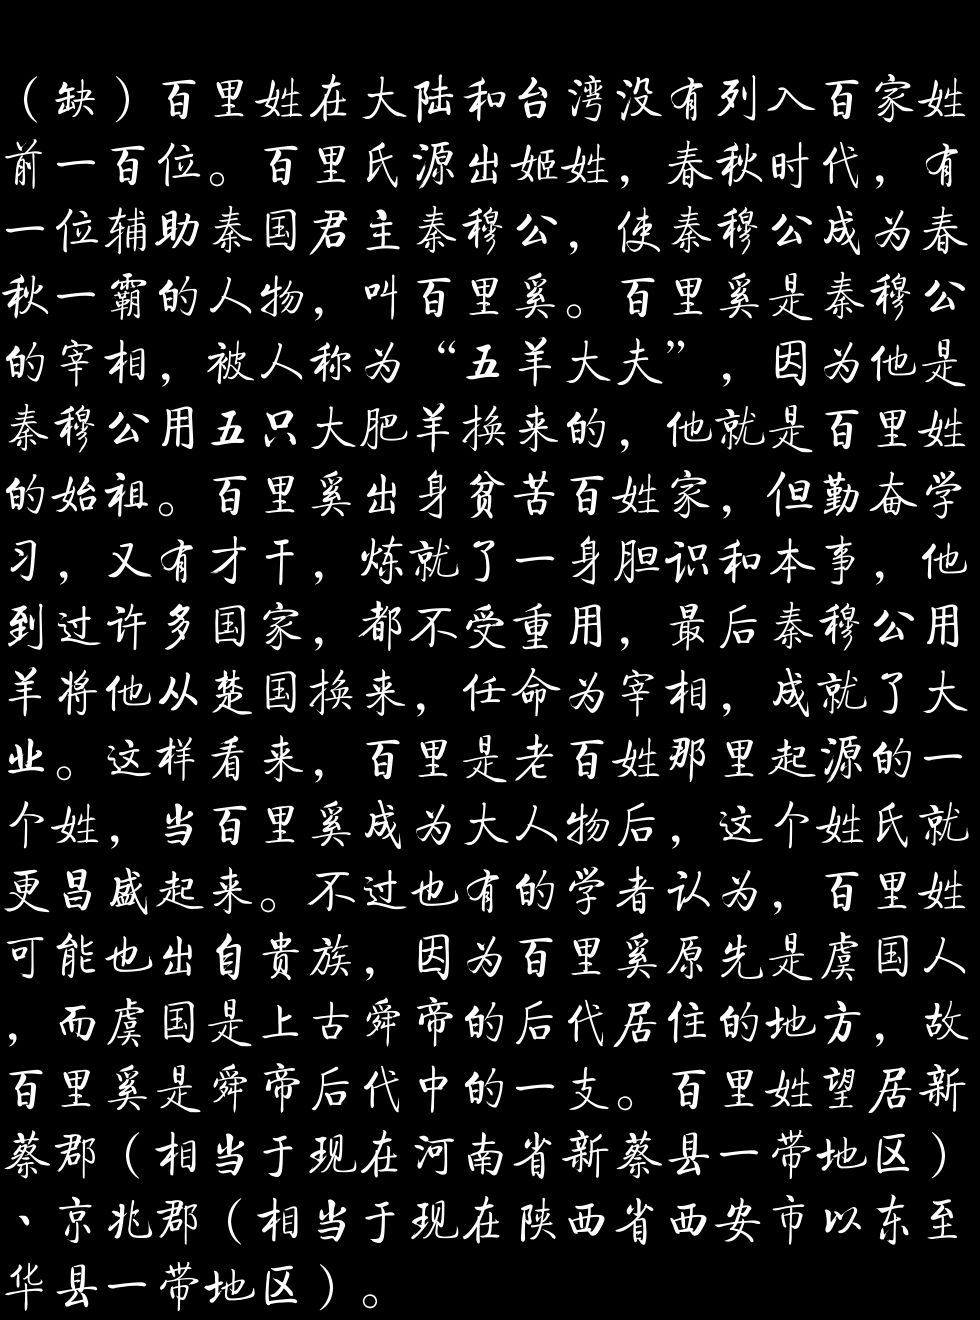 （缺）百里姓在大陆和台湾没有列入百家姓
前一百位。百里氏源出姬姓，春秋时代，有
一位辅助秦国君主秦穆公，使秦穆公成为春
秋一霸的人物，叫百里奚。百里奚是秦穆公
的宰相，被人称为“五羊大夫”，因为他是
秦穆公用五只大肥羊换来的，他就是百里姓
的始祖。百里奚出身贫苦百姓家，但勤奋学
习，又有才干，炼就了一身胆识和本事，他
到过许多国家，都不受重用，最后秦穆公用
羊将他从楚国换来，任命为宰相，成就了大
业。这样看来，百里是老百姓那里起源的一
个姓，当百里奚成为大人物后，这个姓氏就
更昌盛起来。不过也有的学者认为，百里姓
可能也出自贵族，因为百里奚原先是虞国人
，而虞国是上古舜帝的后代居住的地方，故
百里奚是舜帝后代中的一支。百里姓望居新
蔡郡（相当于现在河南省新蔡县一带地区）
、京兆郡（相当于现在陕西省西安市以东至
华县一带地区）。